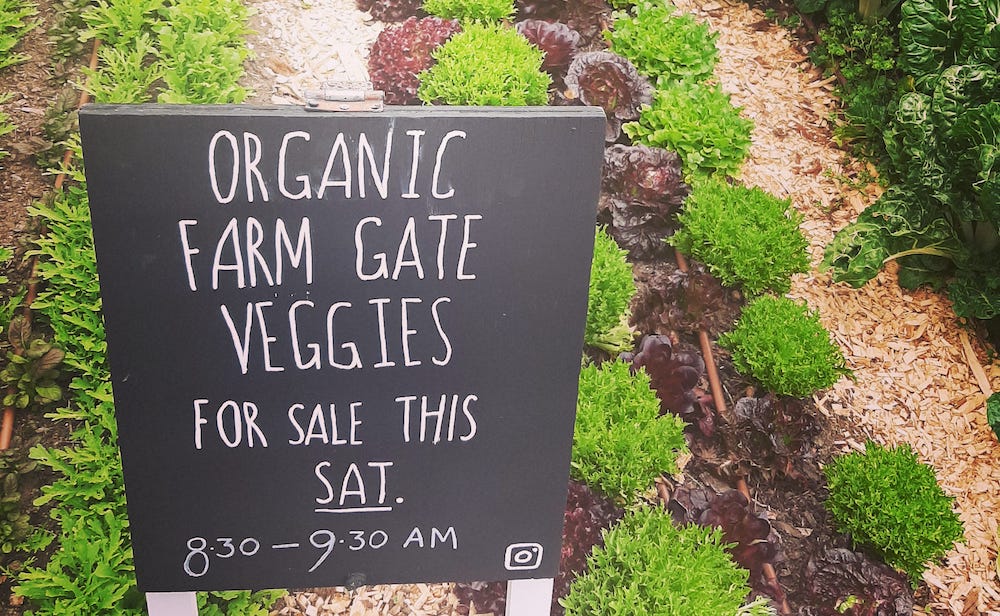 ORGANIC
FARM GATE
VEGGIES
FOR SALE THIS
SAT.
8·30 – 9·30 AM